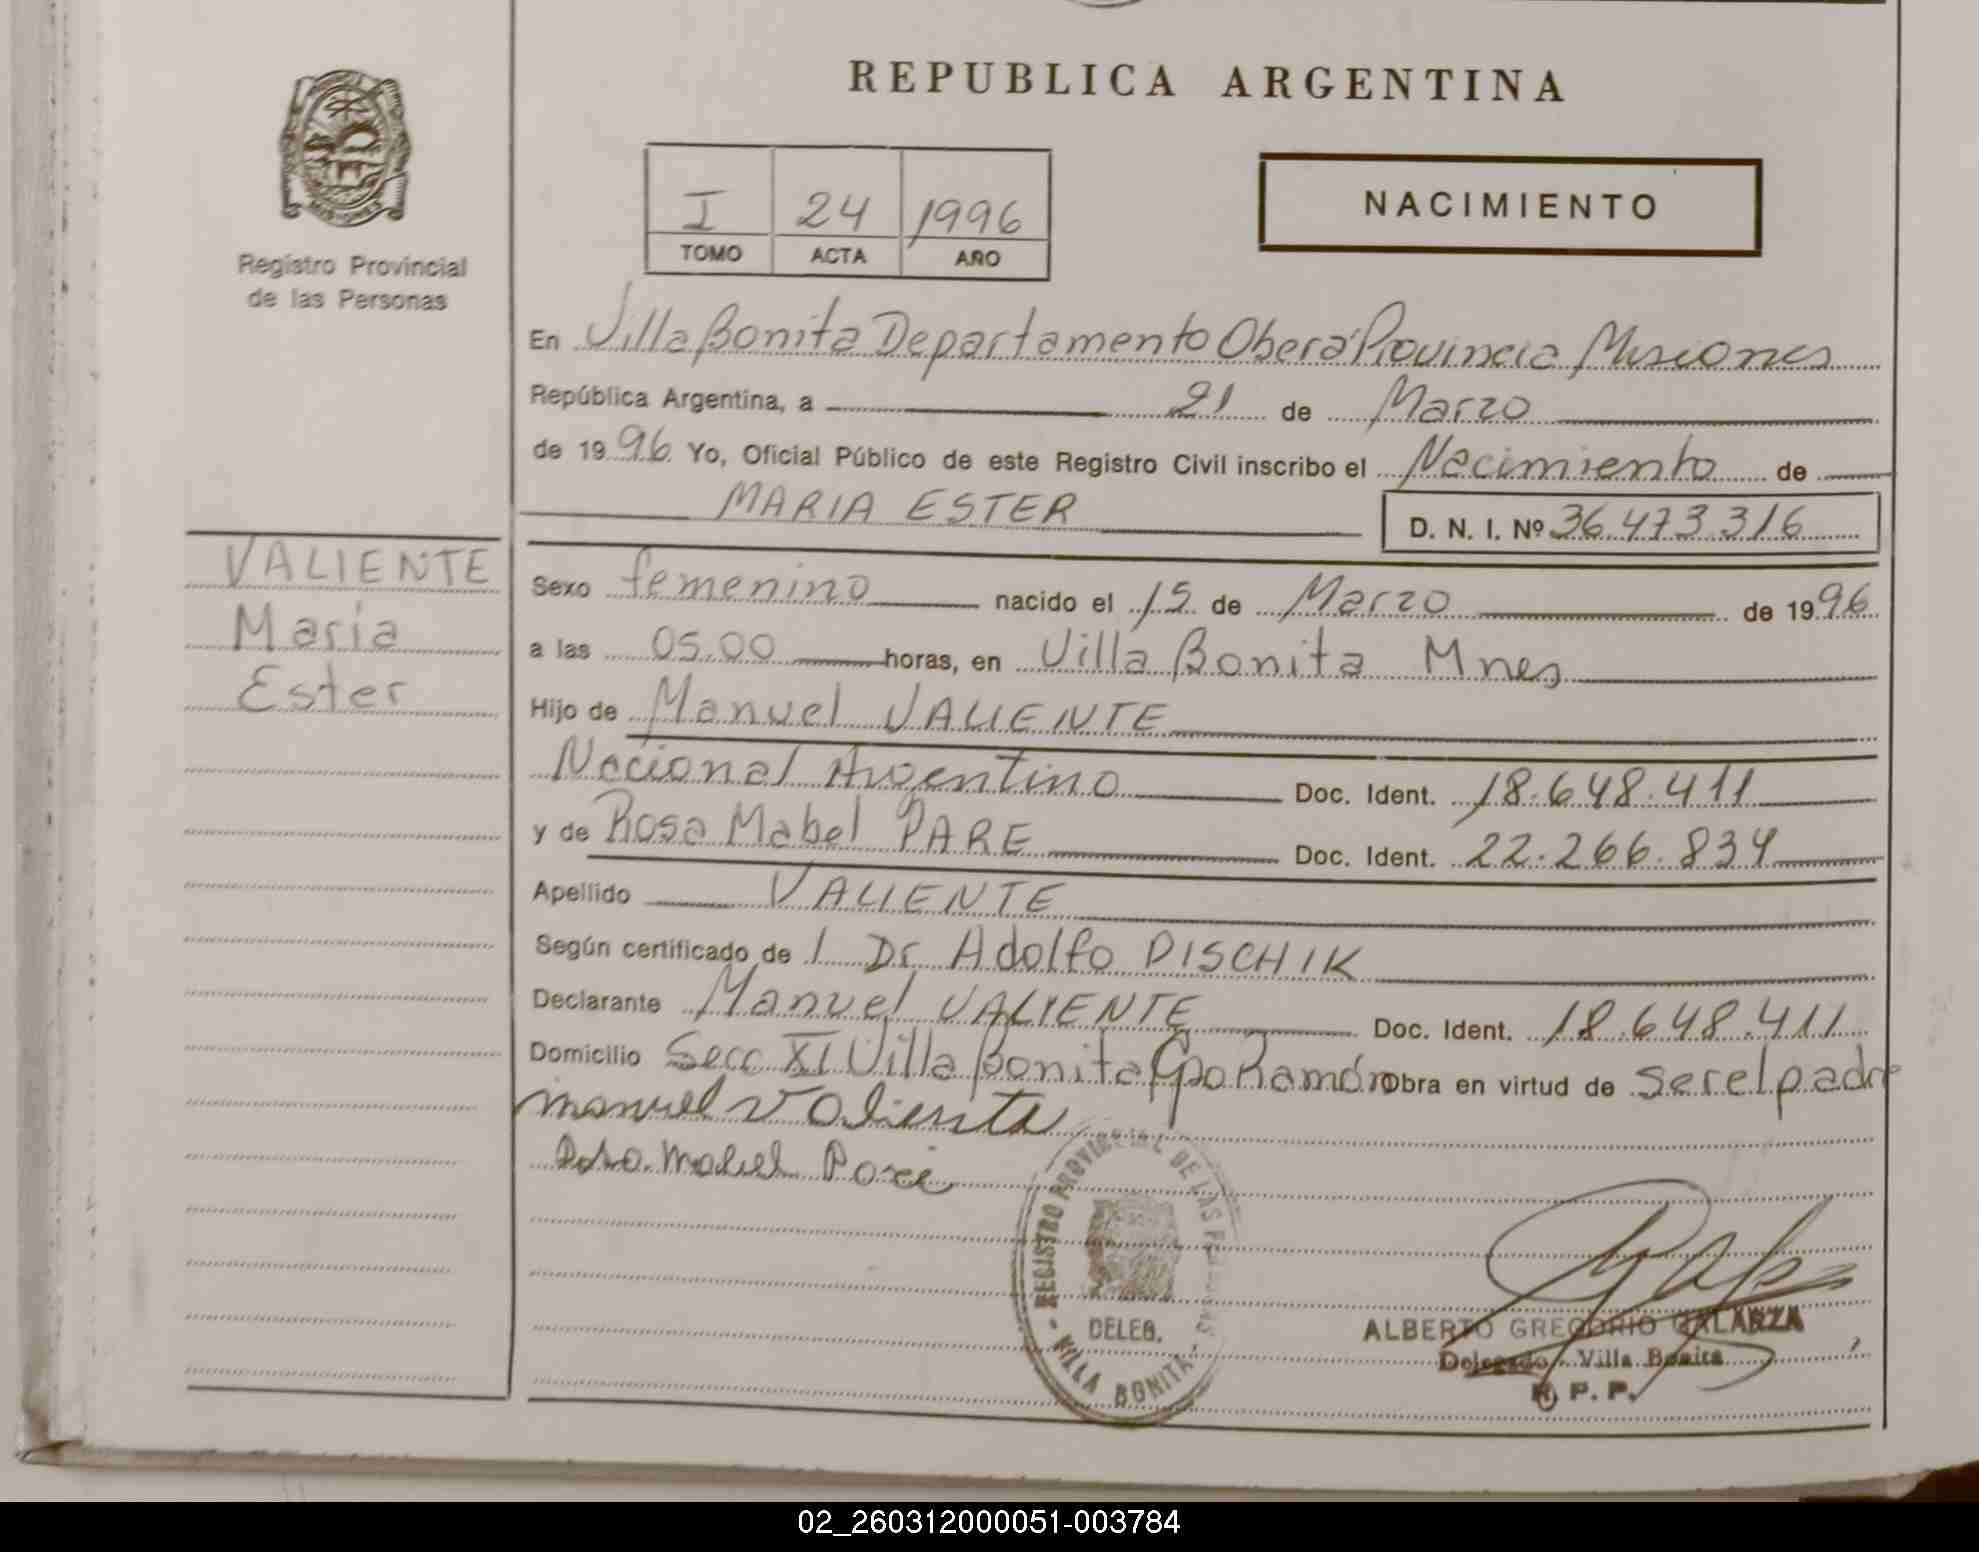 REPUBLICA ARGENTINA
Registro Provincial
de las Personas
MISIONES
I 24 1996
TOMO ACTA AÑO
NACIMIENTO
En Villa Bonita Departamento Oberá Provincia Misiones
República Argentina, a 21 de Marzo
de 1996 Yo, Oficial Público de este Registro Civil inscribo el Nacimiento de
MARIA ESTER D. N. I. Nº 36.473.316
VALIENTE
María
Ester
Sexo femenino nacido el 15 de Marzo de 1996
a las 05.00 horas, en Villa Bonita Mnes
Hijo de Manuel VALIENTE
Nacional Argentino Doc. Ident. 18.648.411
y de Rosa Mabel PARE Doc. Ident. 22.266.834
Apellido VALIENTE
Según certificado de 1 Dr Adolfo DISCHIK
Declarante Manuel VALIENTE Doc. Ident. 18.648.411
Domicilio Secc XI Villa Bonita Gpo Ramón Obra en virtud de ser el padre
manuel Valiente
Rosa Mabel Pare
REGISTRO PROVINCIAL DE LAS PERSONAS
DELEG.
- VILLA BONITA -
ALBERTO GREGORIO GALARZA
Delegado Villa Bonita
R. P. P.
02_260312000051-003784